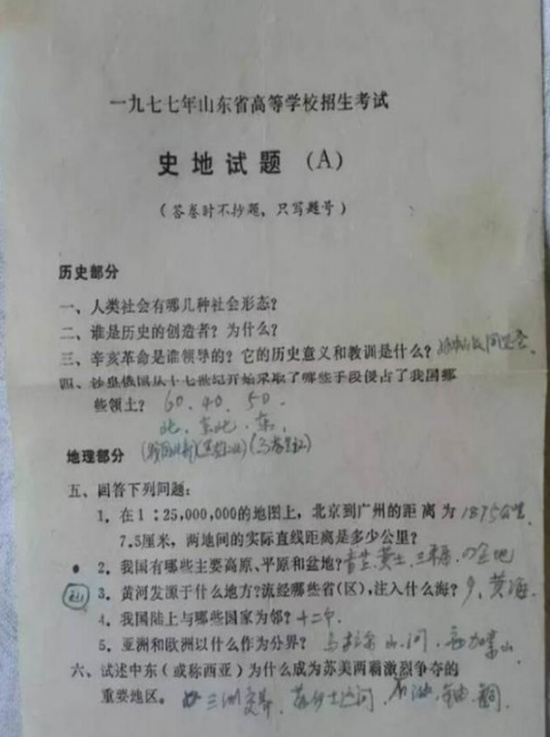 一九七七年山东省高等学校招生考试
史地试题 (A)
(答卷时不抄题，只写题号)
历史部分
一、人类社会有哪几种社会形态?
二、谁是历史的创造者? 为什么?
三、辛亥革命是谁领导的? 它的历史意义和教训是什么? 同盟会
四、沙皇俄国从十七世纪开始采取了哪些手段侵占了我国哪
些领土? 60.40.50.
北.东北.东.
地理部分
五、回答下列问题:
1. 在1:25,000,000的地图上，北京到广州的距离为 1875公里
7.5厘米，两地间的实际直线距离是多少公里?
2. 我国有哪些主要高原、平原和盆地?
3. 黄河发源于什么地方?流经哪些省(区)，注入什么海? 9、黄海
4. 我国陆上与哪些国家为邻? 十二个
5. 亚洲和欧洲以什么作为分界? 乌拉尔山.河.高加索山
六、试述中东(或称西亚)为什么成为苏美两霸激烈争夺的
重要地区。 三洲交界、苏伊士运河.石油.